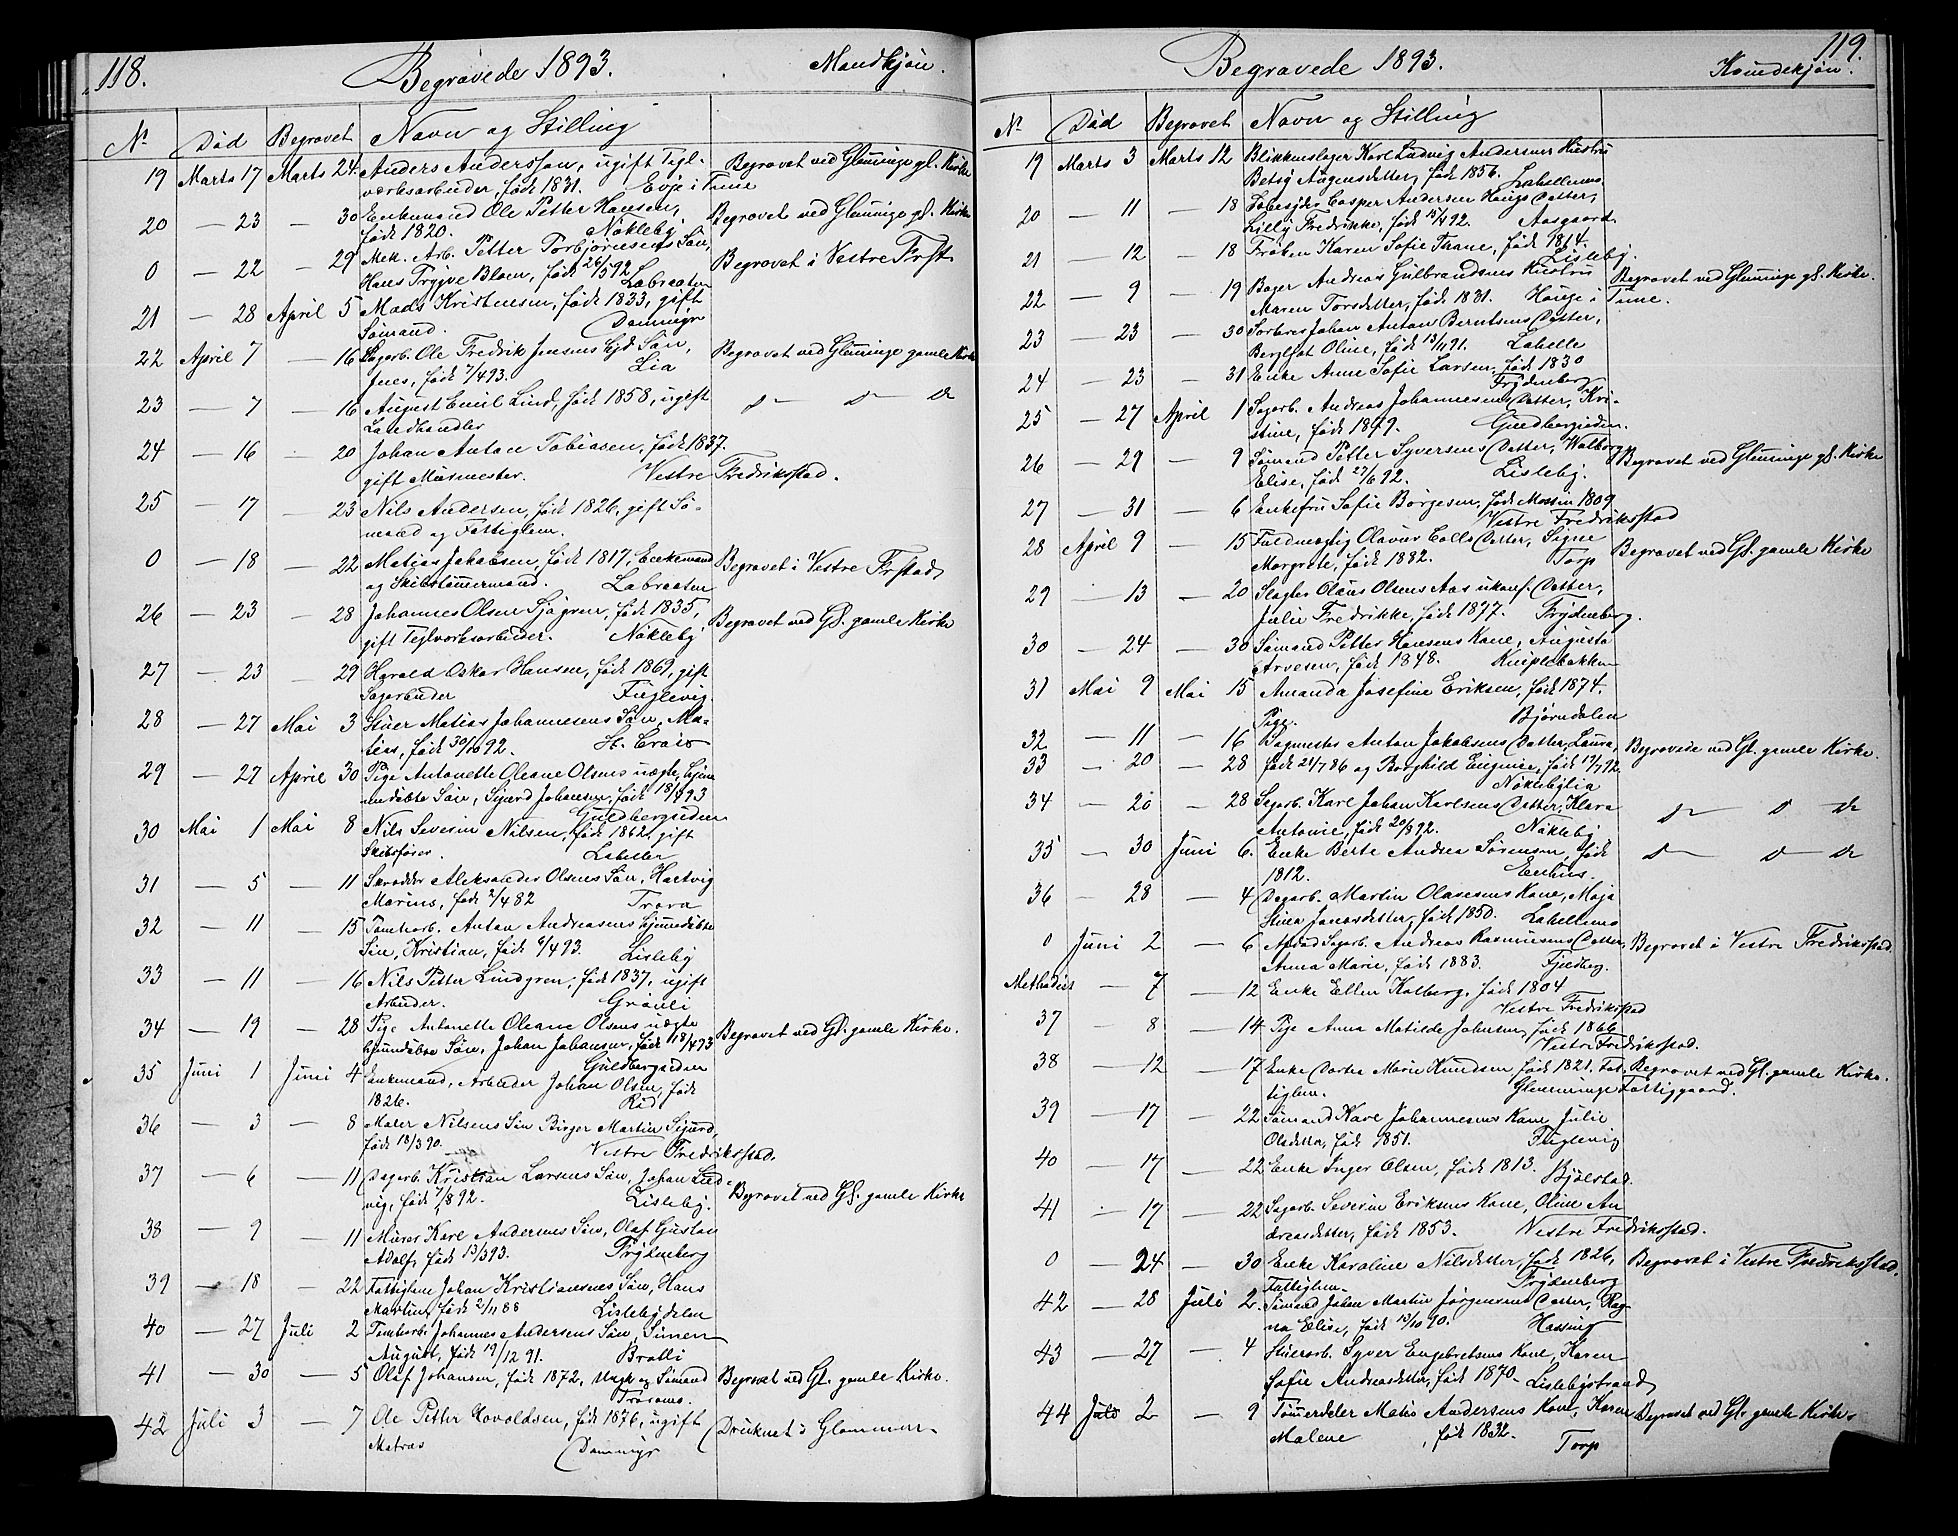 118.
Begravede 1893.
Mandkjøn.
No Død Begravet Navn og Stilling
19 Marts 17 Marts 24. Anders Anderssen, ugift Tegl- Begravet ved Glemminge gl. Kirke
verksarbeider, født 1831. Evje i Tune
20 — 23 — 30 Enkemand Ole Petter Hansen, Begravet ved Glemminge gl. Kirke
født 1820. Nøkleby.
0 — 22 — 29 Mek. Arb. Petter Torbjørnsens Søn, Begravet i Vestre Frst
Hans Trygve Bloen, født 26/5 92 Labraaten
21 — 28 April 5 Mads Kristensen, født 1833, gift
Sømand. Dammyr
22 April 7 — 16 Sagarb. Ole Fredrik Jensens hjd. Søn, Begravet ved Glemminge gamle Kirke
Jens, født 7/4 93. Lia
23 — 7 — 16 August Emil Lind, født 1858, ugift
Landhandler
24 — 16 — 20 Johan Anton Tobiasen, født 1837.
gift Murmester. Vestre Fredriksstad.
25 — 17 — 23 Nils Andersen, født 1826, gift Sø-
mand og Fattiglem.
0 — 18 — 22 Matias Jakobsen, født 1817, Enkemand Begravet i Vestre Frstad
og Skibstømmermand. Labraaten
26 — 23 — 28 Johannes Olsen Sjøgren, født 1835, Begravet ved Gl. gamle Kirke
gift Teglverksarbeider. Nøkleby
27 — 23 — 29 Harald Oskar Hansen, født 1869, gift
Sagarbeider Fuglevig.
28 — 27 Mai 3 Stuer Matias Johannesens Søn, Ma-
tias, født 30/10 92. St. Croix
29 — 27 April 30 Pige Antonette Oleane Olsens uægte, hjem
medøbte Søn, Sigurd Johansen, født 18/4 93
Guldbergsiden
30 Mai 1 Mai 8 Nils Severin Nilsen, født 1862, gift
Skibsfører. Labellen
31 — 5 — 11 Skrædder Aleksander Olsens Søn, Hartvig
Marius, født 2/4 82 Trara
32 — 11 — 15 Tomtearb. Anton Andreasens hjemmedøbte
Søn, Kristian, født 6/4 93. Lisleby
33 — 11 — 16 Nils Petter Lindgren, født 1837, ugift
Arbeider. Graali
34 — 19 — 28 Pige Antonette Oleane Olsens uægte Begravet ved Gl. gamle Kirke.
hjemmedøbte Søn, Johan Johansen, født 18/4 93
Guldbergsiden
35 Juni 1 Juni 4 Enkemand, Arbeider Johan Olsen, født
1826. Rød
36 — 3 — 8 Maler Nilsens Søn Birger Martin Sigurd,
født 18/3 90. Vestre Fredriksstad.
37 — 6 — 11 Dagarb. Kristian Larsens Søn, Johan Lud-
vig, født 7/8 92. Lisleby. Begravet ved Gl. gamle Kirke
38 — 9 — 11 Murer Karl Andersens Søn, Olaf Gustav
Adolf, født 13/3 93. Frydenberg
39 — 18 — 22 Fattiglem Johan Kristiansens Søn, Hans
Martin, født 2/11 88 Lislebydalen
40 — 27 Juli 2 Tomtearb. Johannes Andersens Søn, Simen
August, født 19/12 91. Bratli
41 — 30 — 5 Olaf Johansen, født 1872, Ungk og Sømand Begravet ved Gl. gamle Kirke.
42 Juli 3 — 7 Ole Petter Hovaldsen, født 1876, ugift Druknet i Glommen.
Matros Dammyr
119.
Begravede 1893.
Kvindekjøn.
No Død Begravet Navn og Stilling
19 Marts 3 Marts 12 Blikkenslager Karl Ludvig Andersens Hustru
Betsy Augensdatter, født 1856. Labellens.
20 — 11 — 18 Casper Andersen Haugs Datter,
Lilly Fredrikke, født 92. Aasgaard
21 — 12 — 18 Frøken Karen Sofie Thane, født 1814.
Lisleby.
22 — 9 — 19 Bager Andreas Gulbrandsens Hustru Begravet ved Glemminge gl. Kirke.
Maren Torsdatter, født 1831. Hauge i Tune.
23 — 23 — 30 Johan Anton Berntsens Datter,
Bergljot Oline, født 13/11 91. Labelle
24 — 23 — 31 Enke Anne Sofie Larsen, født 1830
Frydenberg
25 — 27 April 1 Sagarb. Andreas Johannesens Datter, Kri-
stine, født 1879. Guldbergsiden.
26 — 29 — 9 Sømand Petter Syversens Datter, Valborg Begravet ved Glemminge gl. Kirke
Elise, født 27/6 92. Lisleby.
27 — 31 — 6 Enkefru Sofie Borgesen, født Mossin 1809
Vestre Fredriksstad
28 April 9 — 15 Fuldmægtig Olavus Colls Datter, Signe Begravet ved Gl. gamle Kirke
Margrete, født 1882. Torp
29 — 13 — 20 Slagter Olaus Olsens Aas ukonf. Datter,
Julie Fredrikke, født 1877. Frydenberg.
30 — 24 — 30 Sømand Petter Hansens Kone, Augusta
Arvesen, født 1848. Kniplebakken
31 Mai 9 Mai 15 Amanda Josefine Eriksen, født 1874.
Pige. Bjørndalen
32 — 11 — 16 Sagmester Anton Jakobsens Datter, Laura, Begravede ved Gl. gamle Kirke.
33 — 20 — 28 født 21/7 86 og Borghild Eugenie, født 19/7 92.
Nøklebylia
34 — 20 — 28 Sagarb. Karl Johan Karlsens Datter, Klara
Antonie, født 20/8 92. Nøkleby
35 — 30 Juni 6. Enke Berte Andrea Sørensen, født
1812. Enhus.
36 — 28 — 4 Dagarb. Martin Olavesens Kone, Maja
Stina Jonasdatter, født 1850. Labellens
0 Juni 2 — 6 Afdød Sagarb. Andreas Rasmusens Datter, Begravet i Vestre Fredriksstad
Anna Marie, født 1883. Fjeldberg.
Methodist — 7 — 12 Enke Ellen Kolberg, født 1804
Vestre Fredriksstad
37 — 8 — 14 Pige Anna Matilde Johnsen, født 1866
Vestre Fredriksstad.
38 — 12 — 17 Enke Dortea Marie Knudsen, født 1821. Fat- Begravet ved Gl. gamle Kirke.
tiglem. Glemminge Fattiggaard.
39 — 17 — 22 Sømand Karl Johannesens Kone, Julie
Olsdatter, født 1851. Fuglevig
40 — 17 — 22 Enke Inger Olsen, født 1813. Bjølstad.
41 — 17 — 22 Sagarb. Severin Eriksens Kone, Oline An
dreasdatter, født 1853. Vestre Fredriksstad.
0 — 24 — 30 Enke Karoline Nilsdatter, født 1826, Begravet i Vestre Fredriksstad.
Fattiglem. Frydenberg
42 — 28 Juli 2 Sømand Johan Martin Jørgensens Datter, Rag-
na Elise, født 19/10 90. Hassing
43 — 27 — 4 Stuerarb. Syver Engebretsens Kone, Karen
Sofie Andreasdatter, født 1870. Lislebystrand
44 Juli 2 — 9 Tømmerdeler Matis Andersens Kone, Karen Begravet ved Gl. gamle Kirke.
Malene, født 1832. Torp